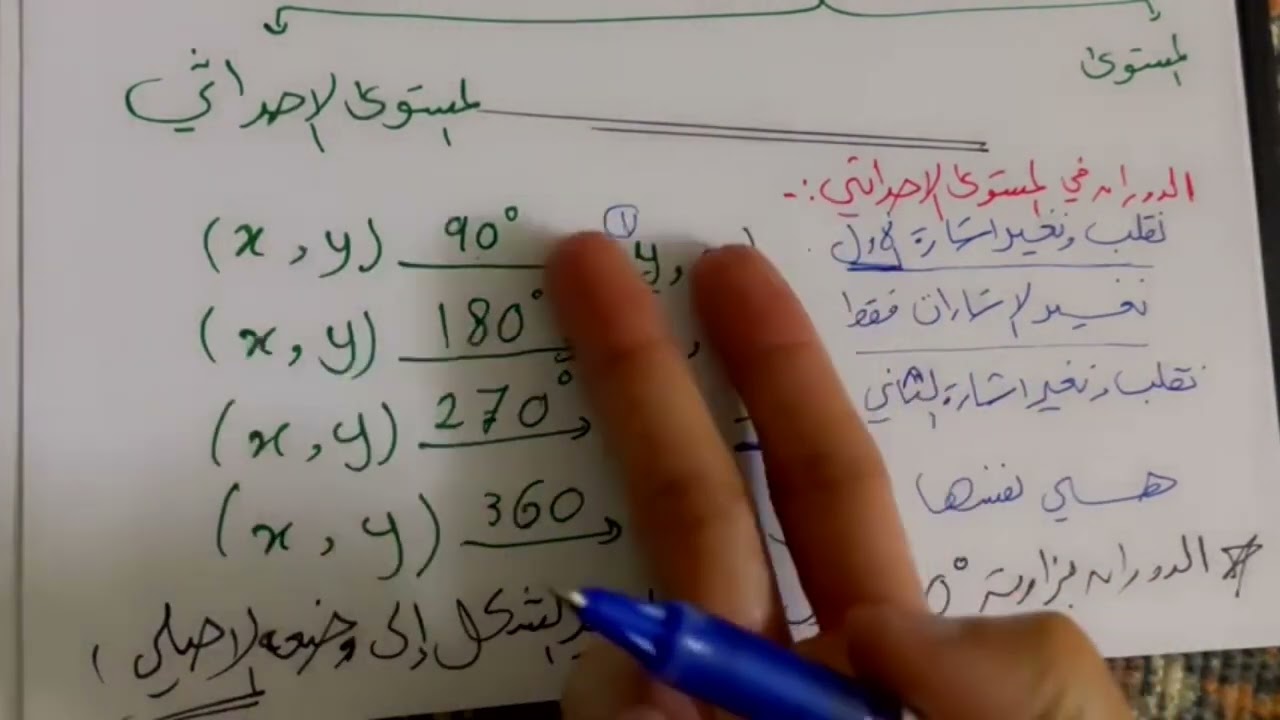 المستوى
المستوى الإحداثي
الدوران في المستوى الإحداثي :-
(x , y) 90° ① y ,
نقلب ونغير اشارة الأول
(x , y) 180° ,
تغيير الإشارات فقط
(x , y) 270°
نقلب ونغير اشارة الثاني
(x , y) 360
هي نفسها
الدوران بزاوية
الشكل إلى وضعه الأصلي